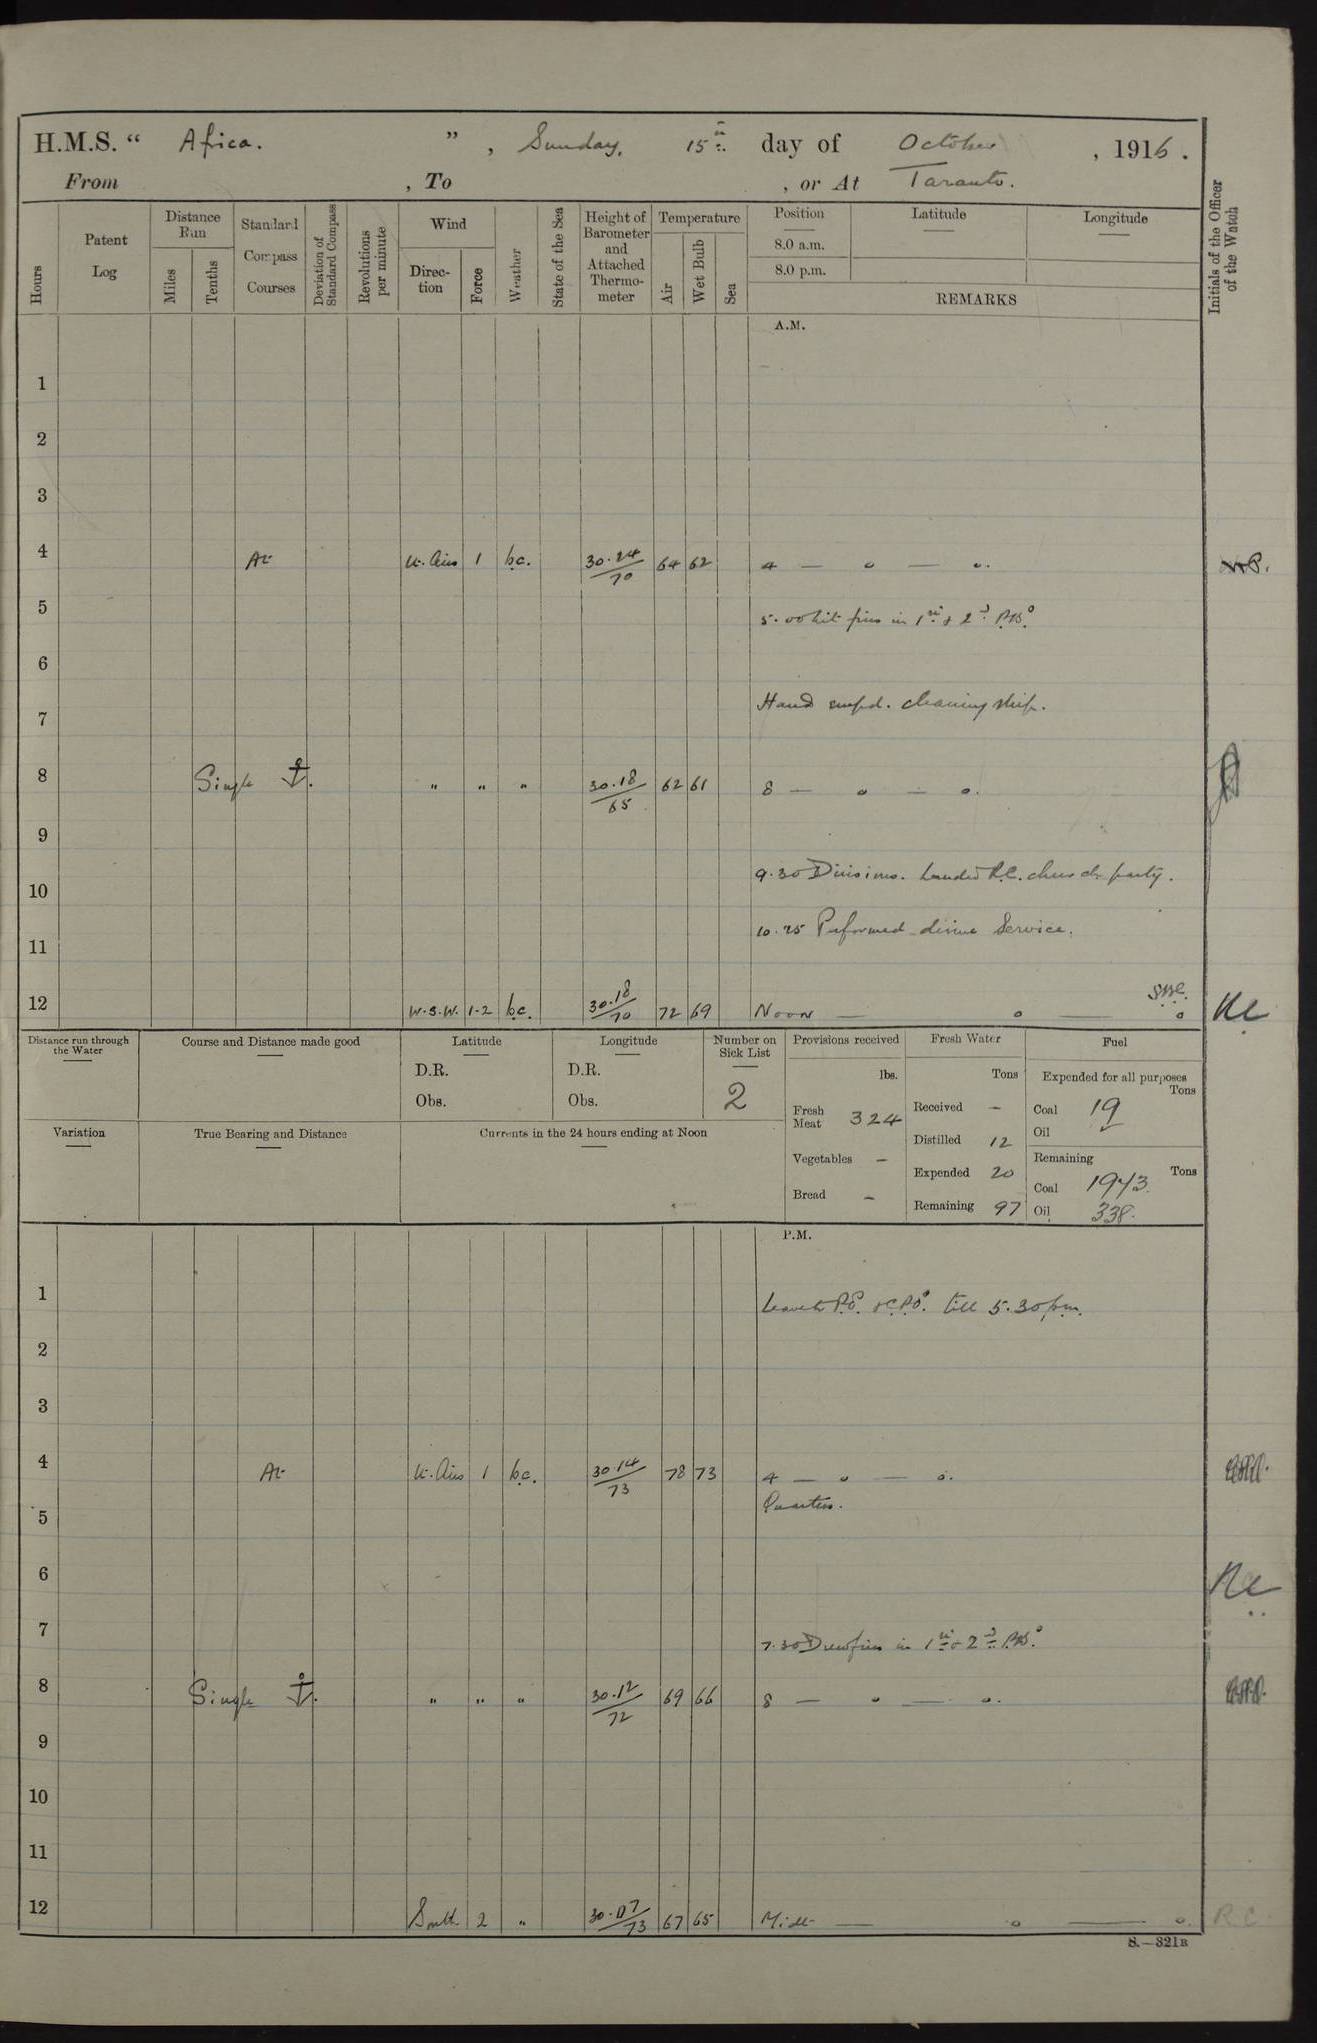 H.M.S. " Africa. " , Sunday, 15th day of October , 1916.
From , To , or At Taranto.
Hours
Patent Log
Distance Run
Miles
Tenths
Standard Compass Courses
Deviation of Standard Compass
Revolutions per minute
Wind
Direction
Force
Weather
State of the Sea
Height of Barometer and Attached Thermometer
Temperature
Air
Wet Bulb
Sea
Position
8.0 a.m.
8.0 p.m.
Latitude
Longitude
REMARKS
Initials of the Officer of the Watch
A.M.
1
2
3
4 At Lt. Airs 1 b.c. 30.24/70 64 62 4 — o — o.
5 5.00 Lit fires in 1st & 2nd P.Bs
6
7 Hands empd. cleaning ship.
8 Single ⚓. " " " 30.18/65 62 61 8 — o — o.
9
9.30 Divisions. Landed R.C. church party.
10
10.25 Performed divine Service.
11
12 W.S.W. 1-2 b.c. 30.18/70 72 69 Noon — o — o
Distance run through the Water
Course and Distance made good
Latitude
D.R.
Obs.
Longitude
D.R.
Obs.
Number on Sick List
2
Variation
True Bearing and Distance
Currents in the 24 hours ending at Noon
Provisions received
lbs.
Fresh Meat 324
Vegetables –
Bread –
Fresh Water
Tons
Received –
Distilled 12
Expended 20
Remaining 97
Fuel
Expended for all purposes
Tons
Coal 19
Oil
Remaining
Tons
Coal 1943
Oil 338.
P.M.
1 Leave to P.O. & C.P.Os. till 5.30 p.m.
2
3
4 At Lt. Airs 1 b.c. 30.14/73 78 73 4 — o — o.
Quarters.
5
6
7
7.30 Drew fires in 1st & 2nd P.Bs
8 Single ⚓. " " " 30.12/72 69 66 8 — o — o.
9
10
11
12 South 2 " 30.07/73 67 65 Midt — o — o. R.C.
S.—321B